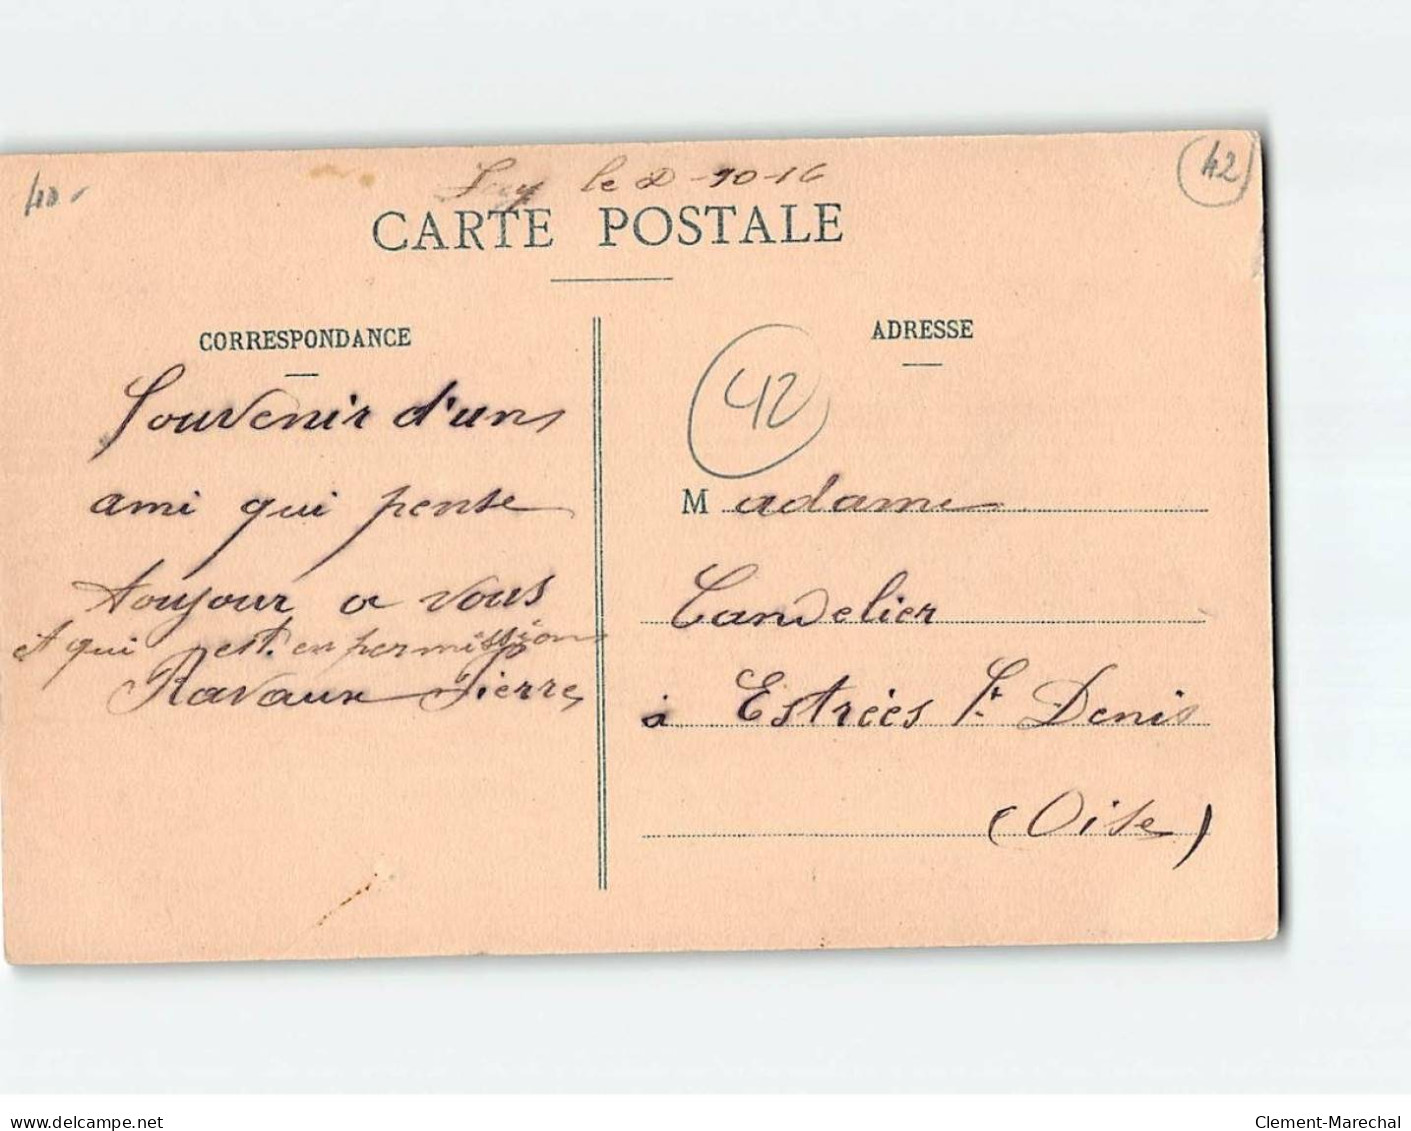 40-
le 2-10-16
42
CARTE POSTALE
CORRESPONDANCE
Souvenir d'un
ami qui pense
toujour a vous
et qui est en permission
Ravaux Pierre
ADRESSE
42
Madame
Candelier
à Estrées St Denis
(Oise)
www.delcampe.net
Clement-Marechal